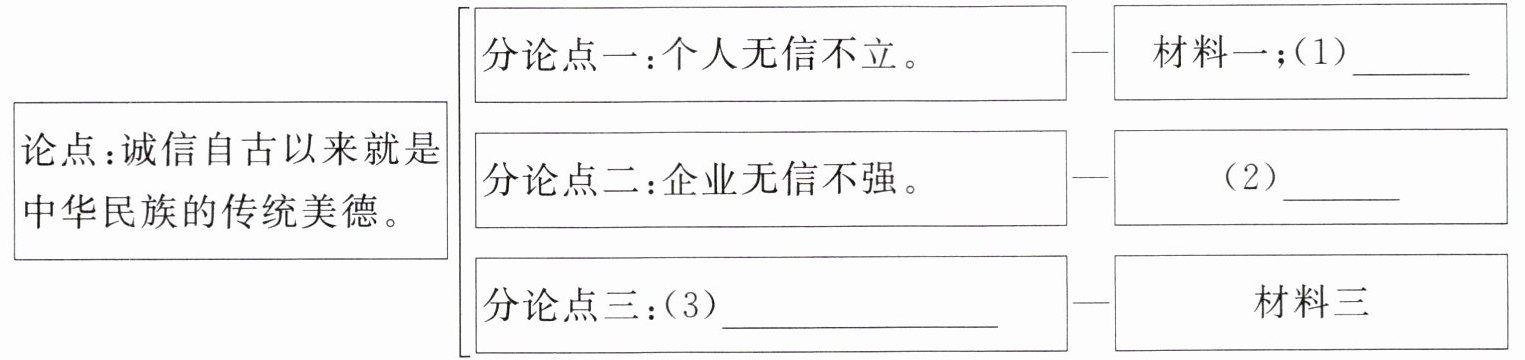 论点:诚信自古以来就是
中华民族的传统美德。
分论点一:个人无信不立。
材料一;(1)______
分论点二:企业无信不强。
(2)______
分论点三:(3)______________
材料三